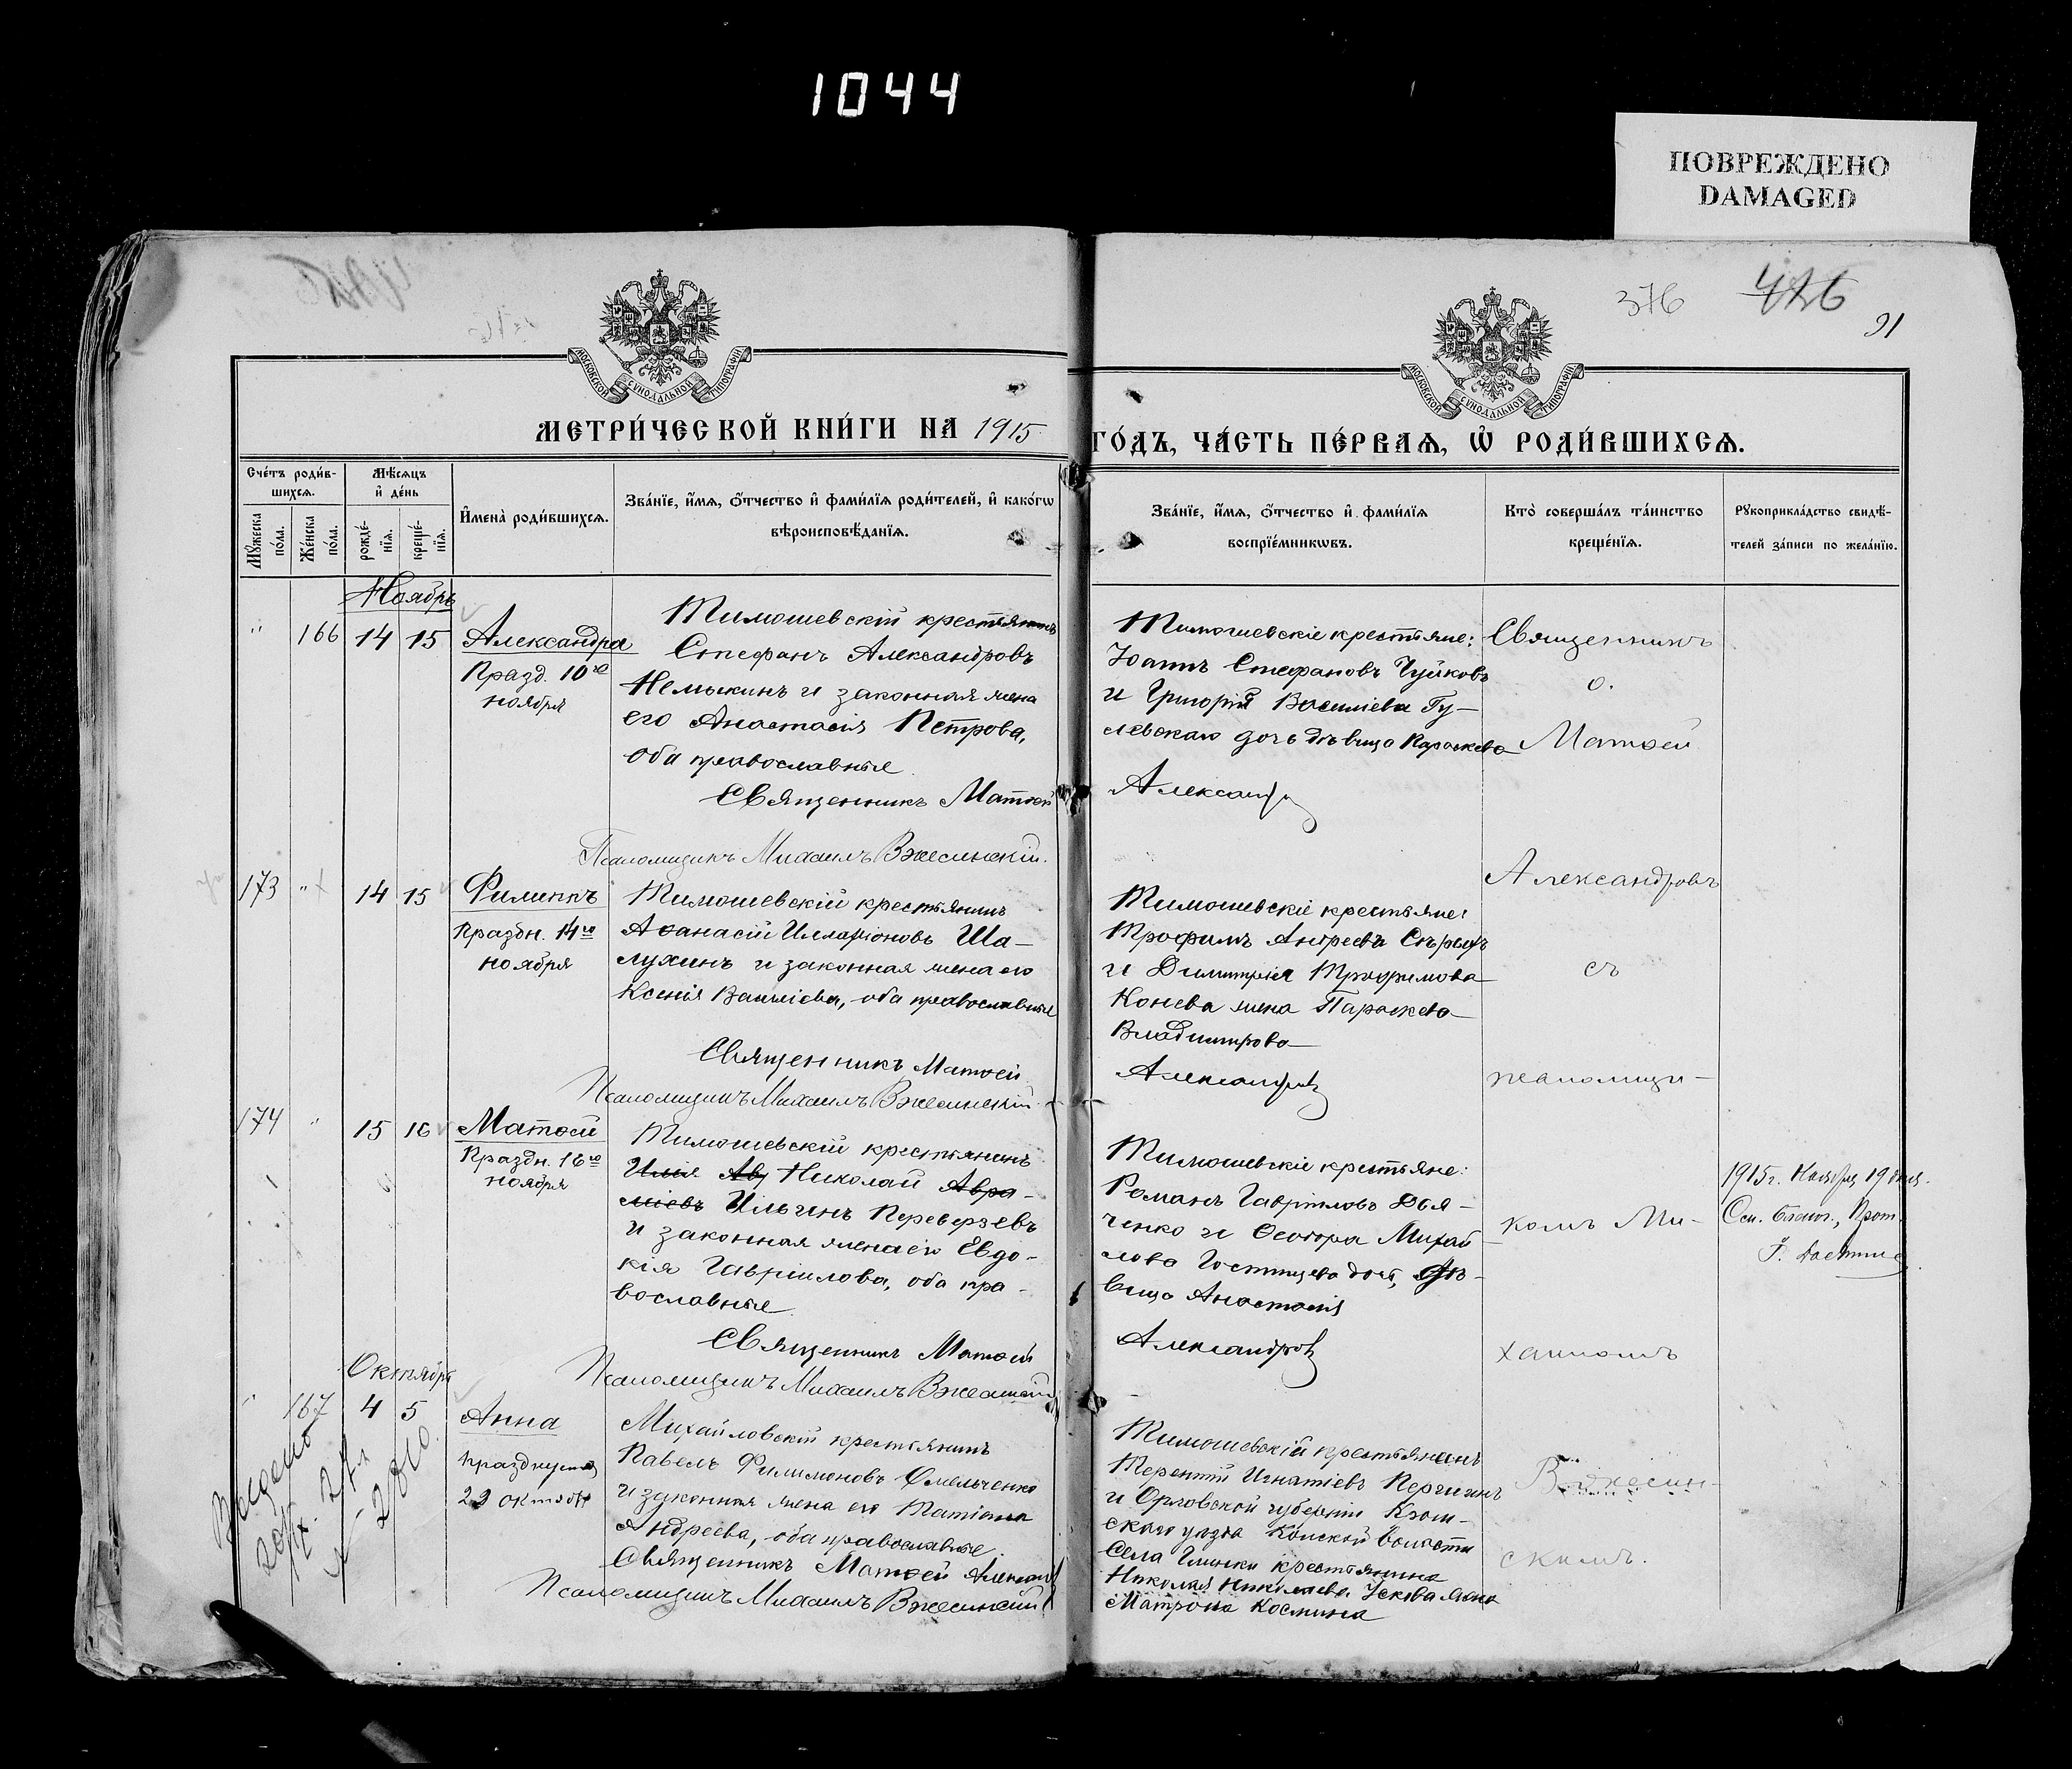 1044
ПОВРЕЖДЕНО
DAMAGED
376
426
91
МОСКОВСКОЙ СУНОДАЛЬНОЙ ТИПОГРАФІИ
МОСКОВСКОЙ СУНОДАЛЬНОЙ ТИПОГРАФІИ
МЕТРИ́ЧЕСКОЙ КНИ́ГИ НА 1915
ГО́ДЪ, ЧА́СТЬ ПЕ́РВАѦ, Ѡ҆ РОДИ́ВШИХСѦ.
Сче́тъ роди́в-
шихсѧ.
Мꙋ́жеска
по́ла.
Же́нска
по́ла.
Мѣ́сѧцъ
и҆ де́нь
рожде́-
нїѧ.
креще́-
нїѧ.
И҆мена̀ роди́вшихсѧ.
Зва́нїе, и҆́мѧ, ѻ҆́тчество и҆ фами́лїѧ роди́телей, и҆ како́гѡ
вѣроисповѣ́данїѧ.
Зва́нїе, и҆́мѧ, ѻ҆́тчество и҆ фами́лїѧ
воспрїе́мникѡвъ.
Кто̀ соверша́лъ та́инство
креще́нїѧ.
Рꙋкоприкла́дство свидѣ́-
телей за́писи по жела́нїю.
Ноябрь
" 166 14 15
Александра
Празд. 10го
ноября
Тимошевскій крестьянинъ
Стефанъ Александровъ
Немыкинъ и законная жена
его Анастасія Петрова,
оба православные
Священникъ Матѳей
Псаломщикъ Михаилъ Вжесинскій.
Тимошевскіе крестьяне:
Іоаннъ Стефановъ Чуйковъ
и Григорія Василіева Гу-
левскаго дочь дѣвица Параскева
Александр
Священникъ
о.
Матѳей
Александровъ
съ
псаломщи-
комъ Ми-
хаиломъ
Вжесин-
скимъ.
173 " 14 15
Филиппъ
Праздн. 14го
ноября
Тимошевскій крестьянинъ
Аѳанасій Илларіоновъ Ша-
лухинъ и законная жена его
Ксенія Василіева, оба православные
Священникъ Матѳей
Псаломщикъ Михаилъ Вжесинскій
Тимошевскіе крестьяне:
Трофимъ Андреевъ
и Димитрія Трофимова
Конева жена Параскева
Владимирова
Александровъ
174 " 15 16
Матѳей
Праздн. 16го
ноября
Тимошевскій крестьянинъ
Илія Ав Николай Авра-
міевъ Ильинъ Переверзевъ
и законная жена его Евдо-
кія Гавріилова, оба пра-
вославные
Священникъ Матѳей
Псаломщикъ Михаилъ Вжесинскій
Тимошевскіе крестьяне:
Романъ Гавріиловъ Дья-
ченко и Ѳеодора Михай-
лова Гостищева дочь, дѣ-
вица Анастасія
Александровъ
1915 г. Ноября 19 дня.
Октября
" 167 4 5
Анна
празднуется
29 октября
Михайловскій крестьянинъ
Павелъ Филимоновъ Омельченко
и законная жена его Татіана
Андреева, оба православные.
Священникъ Матѳей Александ
Псаломщикъ Михаилъ Вжесинскій
Тимошевскій крестьянинъ
Терентій Игнатіевъ
и Орловской губерніи Кром-
скаго уѣзда волости
села Глинки крестьянина
Николая Николаева Ускова жена
Матрона Космина